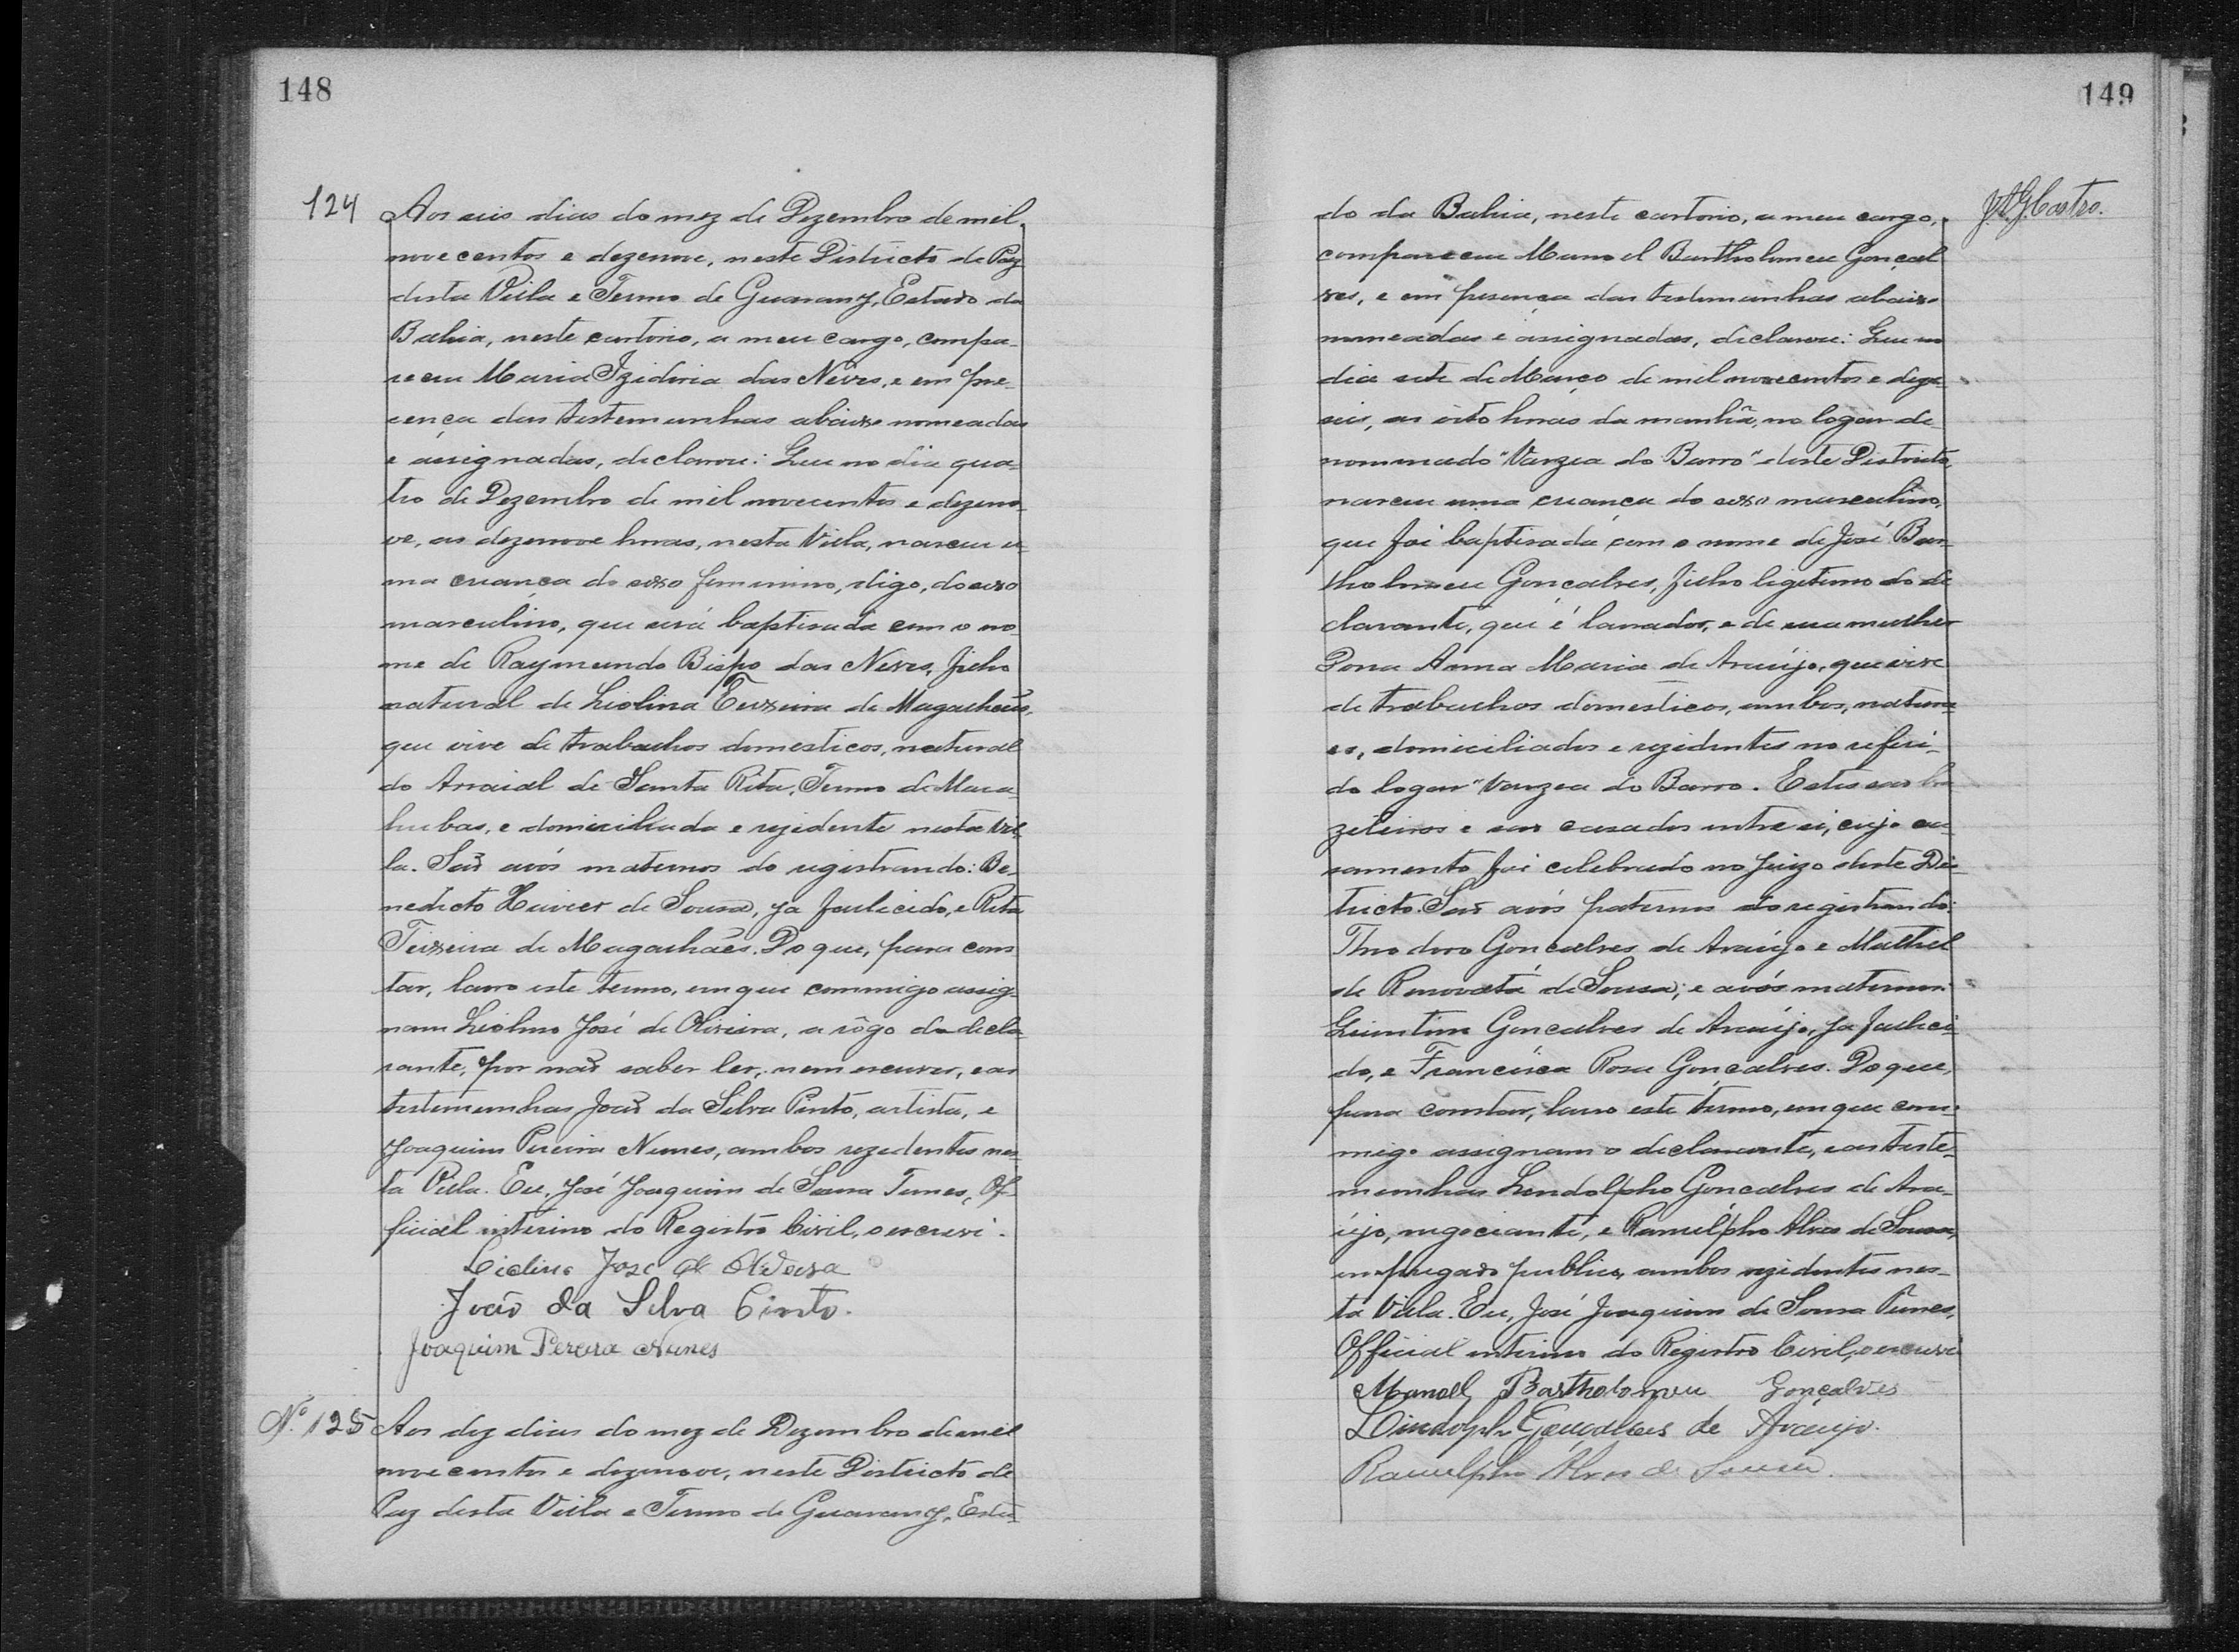 148
124 Aos seis dias do mez de Dezembro de mil
nove centos e dezenove, neste Districto de Paz
desta Villa e Termo de Guarany, Estado da
Bahia, neste cartorio, a meu cargo, compa-
receu Maria Izidoria das Neves, e em pre-
sença das testemunhas abaixo nomeadas
e assignadas, declarou: Que no dia qua-
tro de Dezembro de mil novecentos e dezeno-
ve, as dezenove horas, nesta Villa, nasceu u-
ma criança do sexo feminino, digo, do sexo
masculino, que será baptisada com o no-
me de Raymundo Bispo das Neves, filho
natural de Liolina Teixeira de Magalhães,
que vive de trabalhos domesticos, natural
do Arraial de Santa Rita, Termo de Maca-
hubas, e domiciliada e rezidente nesta Vil-
la. São avós maternos do registrando: Be-
nedicto Xavier de Sousa, ja fallecido, e Rita
Teixeira de Magalhães. Do que, para cons
tar, lavro este termo, em que commigo assig-
nam Liolino José de Oliveira, a rôgo da decla-
rante, por não saber ler, nem escrever, e as
testemunhas João da Silva Pinto, artista, e
Joaquim Pereira Nunes, ambos rezidentes nes-
ta Villa. Eu, José Joaquim de Sousa Tunes, Of-
ficial interino do Registro Civil, o escrevi.
Liolino José de Oliveira
João da Silva Pinto.
Joaquim Pereira Nunes
Nº 125 Aos dez dias do mez de Dezembro de mil
nove centos e dezenove, neste Districto de
Paz desta Villa e Termo de Guarany, Esta-
149
do da Bahia, neste cartorio, a meu cargo,
compareceu Manoel Bartholomeu Gonçal
ves, e em presença das testemunhas abaixo
nomeadas e assignadas, declarou: Que no
dia sete de Março de mil novecentos e deze-
seis, as oito horas da manhã, no logar de-
nominado "Varzea do Barro" deste Districto,
nasceu uma criança do sexo masculino,
que foi baptisada com o nome de José Bar-
tholomeu Gonçalves, filho legitimo do de
clarante, que é lavrador, e de sua mulher
Dona Anna Maria de Araújo, que vive
de trabalhos domesticos, ambos, natura-
es, domiciliados e rezidentes no referi-
do logar "Varzea do Barro. Estes são bra
zileiros e são casados entre si, cujo ca-
samento foi celebrado no Juizo deste Dis-
tricto. São avós paternos do registrando:
Theodoro Gonçalves de Araújo e
de Renovata de Sousa; e avós maternos:
Quintino Gonçalves de Araújo, ja falleci-
do, e Francisca Rosa Gonçalves. Do que,
para constar, lavro este termo, em que com-
migo assignam o declarante, e as teste-
munhas Lindolpho Gonçalves de Ara-
újo, negociante, e Ranulpho Alves de Sousa,
empregado publico, ambos rezidentes nes-
ta Villa. Eu, José Joaquim de Sousa Tunes,
Official interino do Registro Civil, o escrevi
Manoel Bartholomeu Gonçalves
Lindolpho Gonçalves de Araújo.
Ranulpho Alves de Sousa.
Castro.